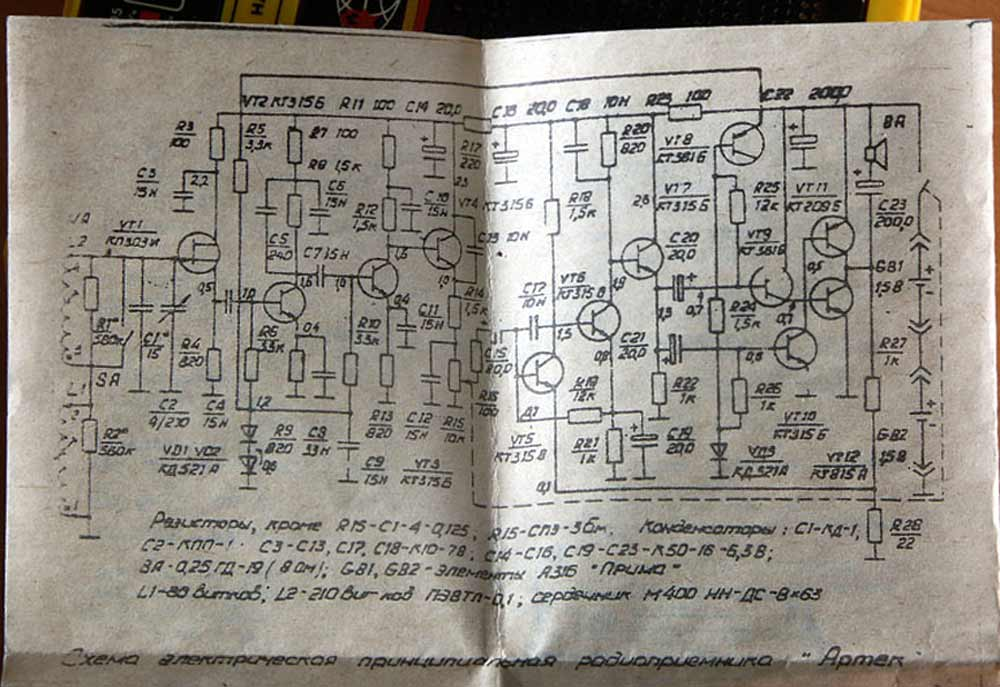 VT2 КТ315Б R11 100 C14 20,0 C16 20,0 C18 10Н R23 100 C22 200,0
R3 100
R5 3,3к
R7 100
R17 220
R20 820
VT8 КТ361Б
ВА
C3 15Н
2,2
R8 1,5к
C6 15Н
R12 1,5к
C10 15Н
2,3
VT4 КТ315Б
R18 1,5к
2,8
VT7 КТ315Б
R25 12к
VT11 КТ209Б
C23 200,0
VT1 КП303И
C5 240
C7 15Н
1,6
1,5
C13 10Н
C20 20,0
VT9 КТ361Б
GB1
1,5В
0,5
1,0
1,0
1,0
C17 10Н
VT6 КТ315В
1,9
1,3
0,7
0,5
0,7
R1* 560к
C1* 15
R4 820
R6 33к
0,4
R10 33к
0,4
C11 15Н
R14 1,5к
C15 20,0
1,5
0,8
C21 20,0
R24 1,5к
0,6
R27 1к
SA
C2 9/270
C4 15Н
1,2
R9 820
C8 33Н
R13 820
C12 15Н
R15 10к
R16 100
R19 12к
R22 1к
R26 1к
VT10 КТ315Б
R2* 560к
VD1 VD2 КД521А
0,6
C9 15Н
VT3 КТ315Б
VT5 КТ315В
R21 1к
C19 20,0
VD3 КД521А
VT12 КТ815А
GB2
1,5В
0,1
R28 22
Резисторы, кроме R15-С1-4-0,125, R15-СП3-3бм. Конденсаторы: С1-КД-1,
С2-КПП-1. С3-С13, С17, С18-К10-7В, С14-С16, С19-С23-К50-16-6,3В;
ВА-0,25ГД-19 (8 Ом); GB1, GB2-элементы А316 "Прима"
L1-80 витков; L2-210 витков ПЭВТЛ-0,1; сердечник М400 НН-ДС-8х63
Схема электрическая принципиальная радиоприемника "Артек"